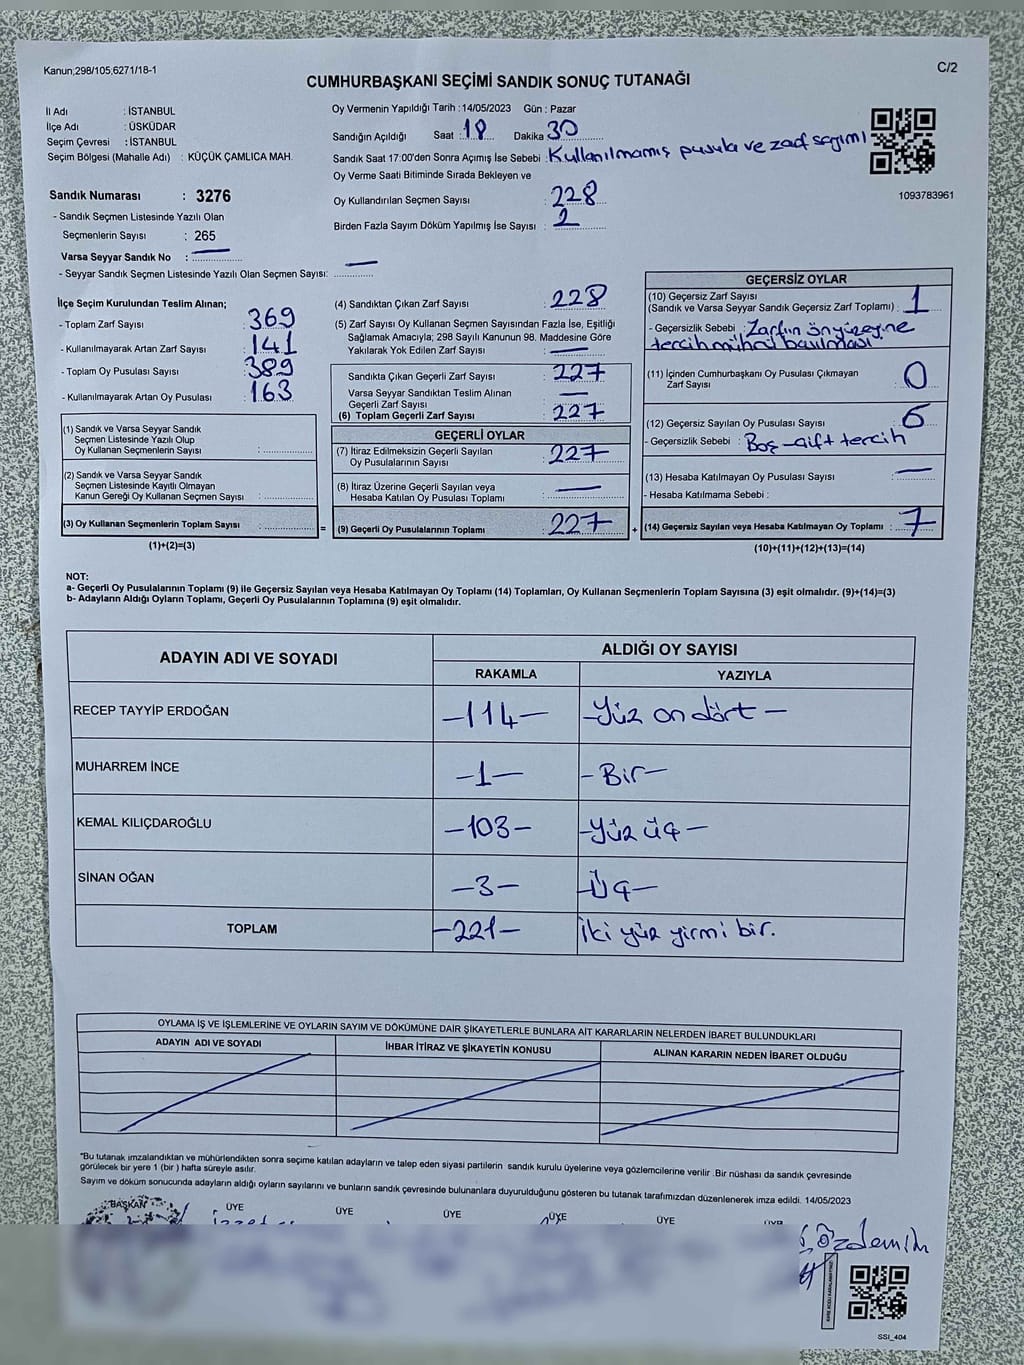 Kanun,298/105,6271/18-1
C/2
CUMHURBAŞKANI SEÇİMİ SANDIK SONUÇ TUTANAĞI
İl Adı : İSTANBUL
İlçe Adı : ÜSKÜDAR
Seçim Çevresi : İSTANBUL
Seçim Bölgesi (Mahalle Adı) : KÜÇÜK ÇAMLICA MAH.
Oy Vermenin Yapıldığı Tarih : 14/05/2023 Gün : Pazar
Sandığın Açıldığı Saat : 18 Dakika 30
Sandık Saat 17:00'den Sonra Açımış İse Sebebi : Kullanılmamış pusula ve zarf sayımı
Oy Verme Saati Bitiminde Sırada Bekleyen ve
Oy Kullandırılan Seçmen Sayısı : 228
Birden Fazla Sayım Döküm Yapılmış İse Sayısı : 2
1093783961
Sandık Numarası : 3276
- Sandık Seçmen Listesinde Yazılı Olan
Seçmenlerin Sayısı : 265
Varsa Seyyar Sandık No : —
- Seyyar Sandık Seçmen Listesinde Yazılı Olan Seçmen Sayısı: —
İlçe Seçim Kurulundan Teslim Alınan;
- Toplam Zarf Sayısı : 369
- Kullanılmayarak Artan Zarf Sayısı : 141
- Toplam Oy Pusulası Sayısı : 389
- Kullanılmayarak Artan Oy Pusulası : 163
(1) Sandık ve Varsa Seyyar Sandık
Seçmen Listesinde Yazılı Olup
Oy Kullanan Seçmenlerin Sayısı :
(2) Sandık ve Varsa Seyyar Sandık
Seçmen Listesinde Kayıtlı Olmayan
Kanun Gereği Oy Kullanan Seçmen Sayısı :
(3) Oy Kullanan Seçmenlerin Toplam Sayısı :
(1)+(2)=(3)
(4) Sandıktan Çıkan Zarf Sayısı : 228
(5) Zarf Sayısı Oy Kullanan Seçmen Sayısından Fazla İse, Eşitliği
Sağlamak Amacıyla; 298 Sayılı Kanunun 98. Maddesine Göre
Yakılarak Yok Edilen Zarf Sayısı : —
Sandıkta Çıkan Geçerli Zarf Sayısı : 227
Varsa Seyyar Sandıktan Teslim Alınan
Geçerli Zarf Sayısı : —
(6) Toplam Geçerli Zarf Sayısı : 227
GEÇERLİ OYLAR
(7) İtiraz Edilmeksizin Geçerli Sayılan
Oy Pusulalarının Sayısı : 227
(8) İtiraz Üzerine Geçerli Sayılan veya
Hesaba Katılan Oy Pusulası Toplamı : —
= (9) Geçerli Oy Pusulalarının Toplamı : 227
GEÇERSİZ OYLAR
(10) Geçersiz Zarf Sayısı
(Sandık ve Varsa Seyyar Sandık Geçersiz Zarf Toplamı) : 1
- Geçersizlik Sebebi : Zarfın önyüzeyine
tercih mührü basılması
(11) İçinden Cumhurbaşkanı Oy Pusulası Çıkmayan
Zarf Sayısı : 0
(12) Geçersiz Sayılan Oy Pusulası Sayısı : 6
- Geçersizlik Sebebi : Boş - Çift tercih
(13) Hesaba Katılmayan Oy Pusulası Sayısı : —
- Hesaba Katılmama Sebebi :
+ (14) Geçersiz Sayılan veya Hesaba Katılmayan Oy Toplamı : 7
(10)+(11)+(12)+(13)=(14)
NOT:
a- Geçerli Oy Pusulalarının Toplamı (9) ile Geçersiz Sayılan veya Hesaba Katılmayan Oy Toplamı (14) Toplamları, Oy Kullanan Seçmenlerin Toplam Sayısına (3) eşit olmalıdır. (9)+(14)=(3)
b- Adayların Aldığı Oyların Toplamı, Geçerli Oy Pusulalarının Toplamına (9) eşit olmalıdır.
ADAYIN ADI VE SOYADI
ALDIĞI OY SAYISI
RAKAMLA YAZIYLA
RECEP TAYYİP ERDOĞAN -114- -Yüz on dört-
MUHARREM İNCE -1- -Bir-
KEMAL KILIÇDAROĞLU -103- -Yüz üç-
SİNAN OĞAN -3- -Üç-
TOPLAM -221- İki yüz yirmi bir.
OYLAMA İŞ VE İŞLEMLERİNE VE OYLARIN SAYIM VE DÖKÜMÜNE DAİR ŞİKAYETLERLE BUNLARA AİT KARARLARIN NELERDEN İBARET BULUNDUKLARI
ADAYIN ADI VE SOYADI İHBAR İTİRAZ VE ŞİKAYETİN KONUSU ALINAN KARARIN NEDEN İBARET OLDUĞU
*Bu tutanak imzalandıktan ve mühürlendikten sonra seçime katılan adayların ve talep eden siyasi partilerin sandık kurulu üyelerine veya gözlemcilerine verilir .Bir nüshası da sandık çevresinde
görülecek bir yere 1 (bir ) hafta süreyle asılır.
Sayım ve döküm sonucunda adayların aldığı oyların sayılarını ve bunların sandık çevresinde bulunanlara duyurulduğunu gösteren bu tutanak tarafımızdan düzenlenerek imza edildi. 14/05/2023
BAŞKAN ÜYE ÜYE ÜYE ÜYE ÜYE ÜYE
Özdemir
SSI_404